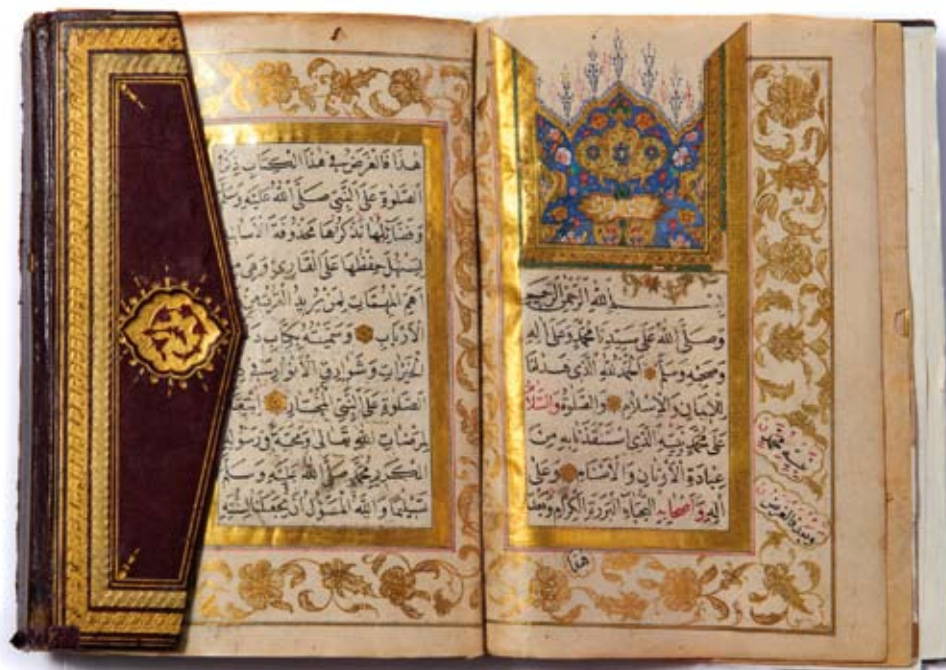 بسم الله الرحمن الرحيم
وصلى الله على سيدنا محمد وعلى اله
وصحبه وسلم الحمد لله الذى هدانا
للايمان والاسلام والصلوة والسلام
على محمد نبيه الذى استنقذنا به من
عبادة الاوثان والاصنام وعلى
اله واصحابه النجباء البررة الكرام وبعد
وبعد فالغرض
هذا
هذا فالغرض فى هذا الكتاب ذكر
الصلوة على النبى صلى الله عليه وسلم
وفضائلها نذكرها محذوفة الاسانيد
ليسهل حفظها على القارئ وهى من
اهم المهمات لمن يريد القرب من
الارباب وسميته بكتاب
الخيرات وشوارق الانوار فى
الصلوة على النبى المختار ابتغاء
لمرضات الله تعالى ومحبة فى رسوله
الكريم محمد صلى الله عليه وسلم
تسليما والله المسؤل ان يجعلنا لسنته